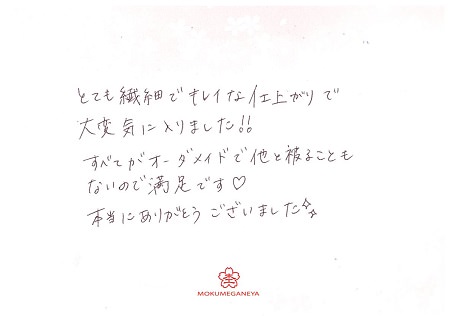 とても繊細でキレイな仕上がりで
大変気に入りました!!
すべてがオーダメイドで他と被ることも
ないので満足です♡
本当にありがとうございました✨
MOKUMEGANEYA